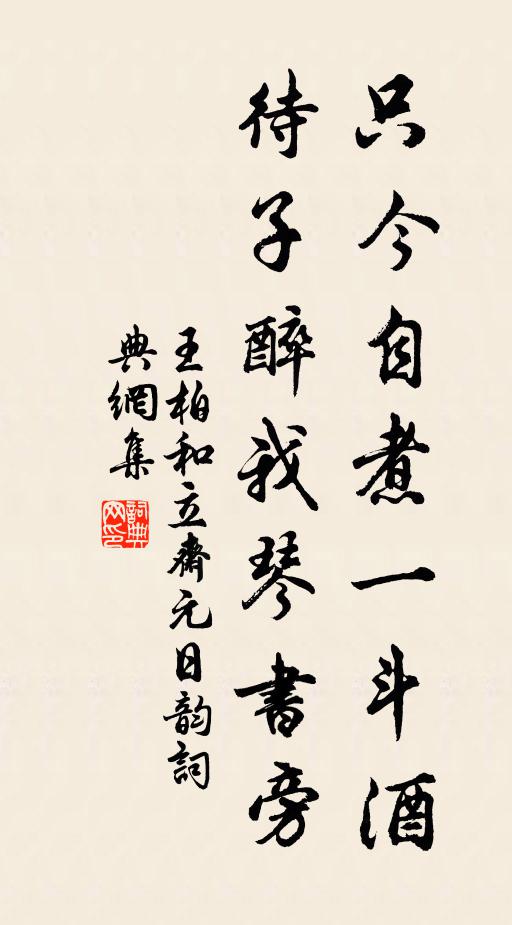 只今自煮一斗酒
待子醉我琴書旁
王柏和立齋元日韵詞
典網集
詞典
网印